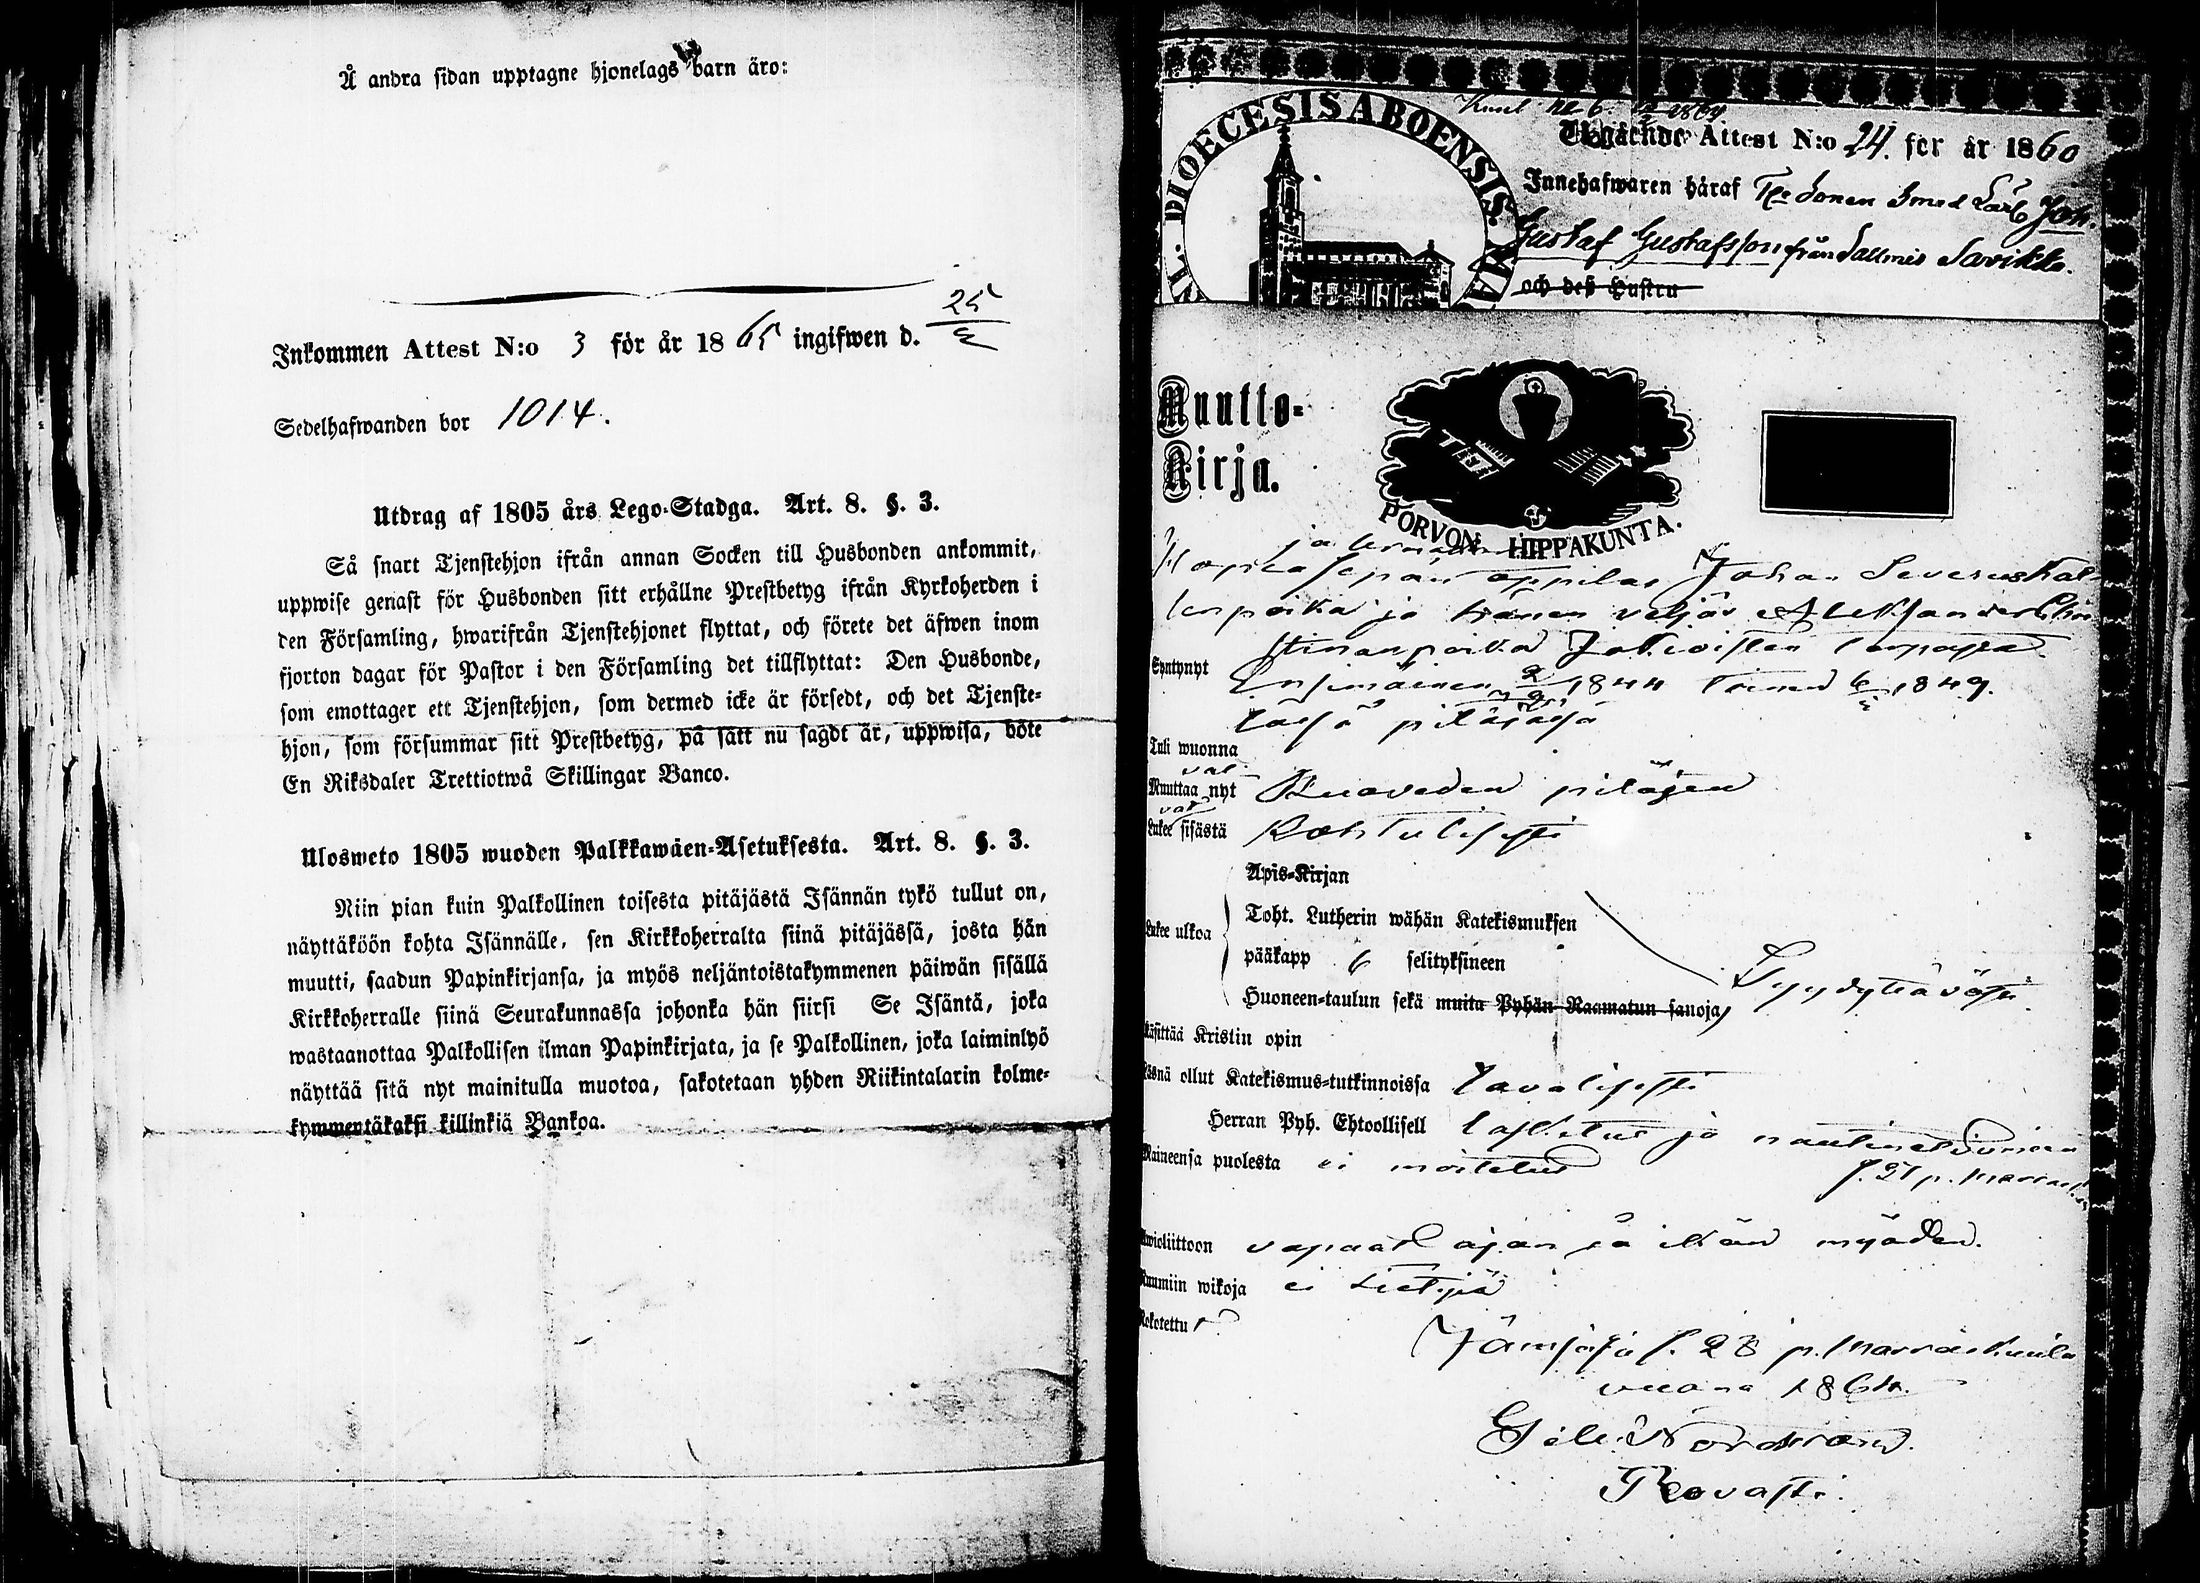 Å andra sidan upptagne hjonelags barn äro:
Inkommen Attest N:o 3 för år 1865 ingifwen d. 25
Sedelhafwanden bor 1014.
Utdrag af 1805 års Lego-Stadga. Art. 8. §. 3.
Så snart Tjenstehjon ifrån annan Socken till Husbonden ankommit,
uppwise genast för Husbonden sitt erhållne Prestbetyg ifrån Kyrkoherden i
den Församling, hwarifrån Tjenstehjonet flyttat, och förete det äfwen inom
fjorton dagar för Pastor i den Församling det tillflyttat: Den Husbonde,
som emottager ett Tjenstehjon, som dermed icke är försedt, och det Tjenste-
hjon, som försummar sitt Prestbetyg, på sätt nu sagdt är, uppwisa, böte
En Riksdaler Trettiotwå Skillingar Banco.
Ulosweto 1805 wuoden Palkkawäen-Asetuksesta. Art. 8. §. 3.
Niin pian kuin Palkollinen toisesta pitäjästä Isännän tykö tullut on,
näyttäköön kohta Isännälle, sen Kirkkoherralta siinä pitäjässä, josta hän
muutti, saadun Papinkirjansa, ja myös neljäntoistakymmenen päiwän sisällä
Kirkkoherralle siinä Seurakunnassa johonka hän siirsi Se Isäntä, joka
wastaanottaa Palkollisen ilman Papinkirjata, ja se Palkollinen, joka laiminlyö
näyttää sitä nyt mainitulla muotoa, sakotetaan yhden Riikintalarin kolme-
kymmentäkaksi killinkiä Bankoa.
DIOECESIS ABOENSIS
Utgående Attest N:o 24. för år 1860
Innehafwaren häraf Joh.
Gustaf Gustafsson från Sallmis Savikko.
och deß Hustru
Muutto-
Kirja.
PORVON HIPPAKUNTA.
oppilas Johan Severus
poika ja hänen veljäs Aleksander
poika
Syntynyt Ensimäinen 1844 toinen 1849.
tässä pitäjässä
Tuli wuonna
vat
Muuttaa nyt Kuaveden pitäjän
vat
Lukee sisästä Kohtulisesti
Lukee ulkoa
Apis-Kirjan
Toht. Lutherin wähän Katekismuksen
pääkapp 6 selityksineen
Huoneen-taulun sekä muita Pyhän Raamatun sanoja
Tyydyttävästi
Käsittää Kristin opin
Läsnä ollut Katekismus-tutkinnoissa tavalisesti
Herran Pyh. Ehtoollisell lasketut ja
Maineensa puolesta ei moitetut
s. 21 p.
Awioliittoon vapaat ajan ja ikän myöden.
Ruumiin wikoja ei tietyjä
Rokotettu t
Jämsässä s. 28 p. Marraskuula
vuona 1864.
Nordstrand.
Rovasti.